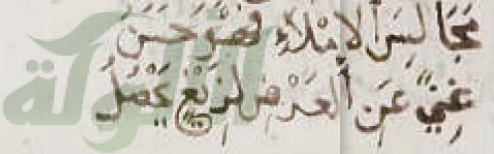 مَجَالِسِ الإِمْلَاءِ فَهْوَ حَسَنُ
غَنِيٌّ عَنِ الْعَرْضِ لِزَيْغٍ يَحْصُلُ